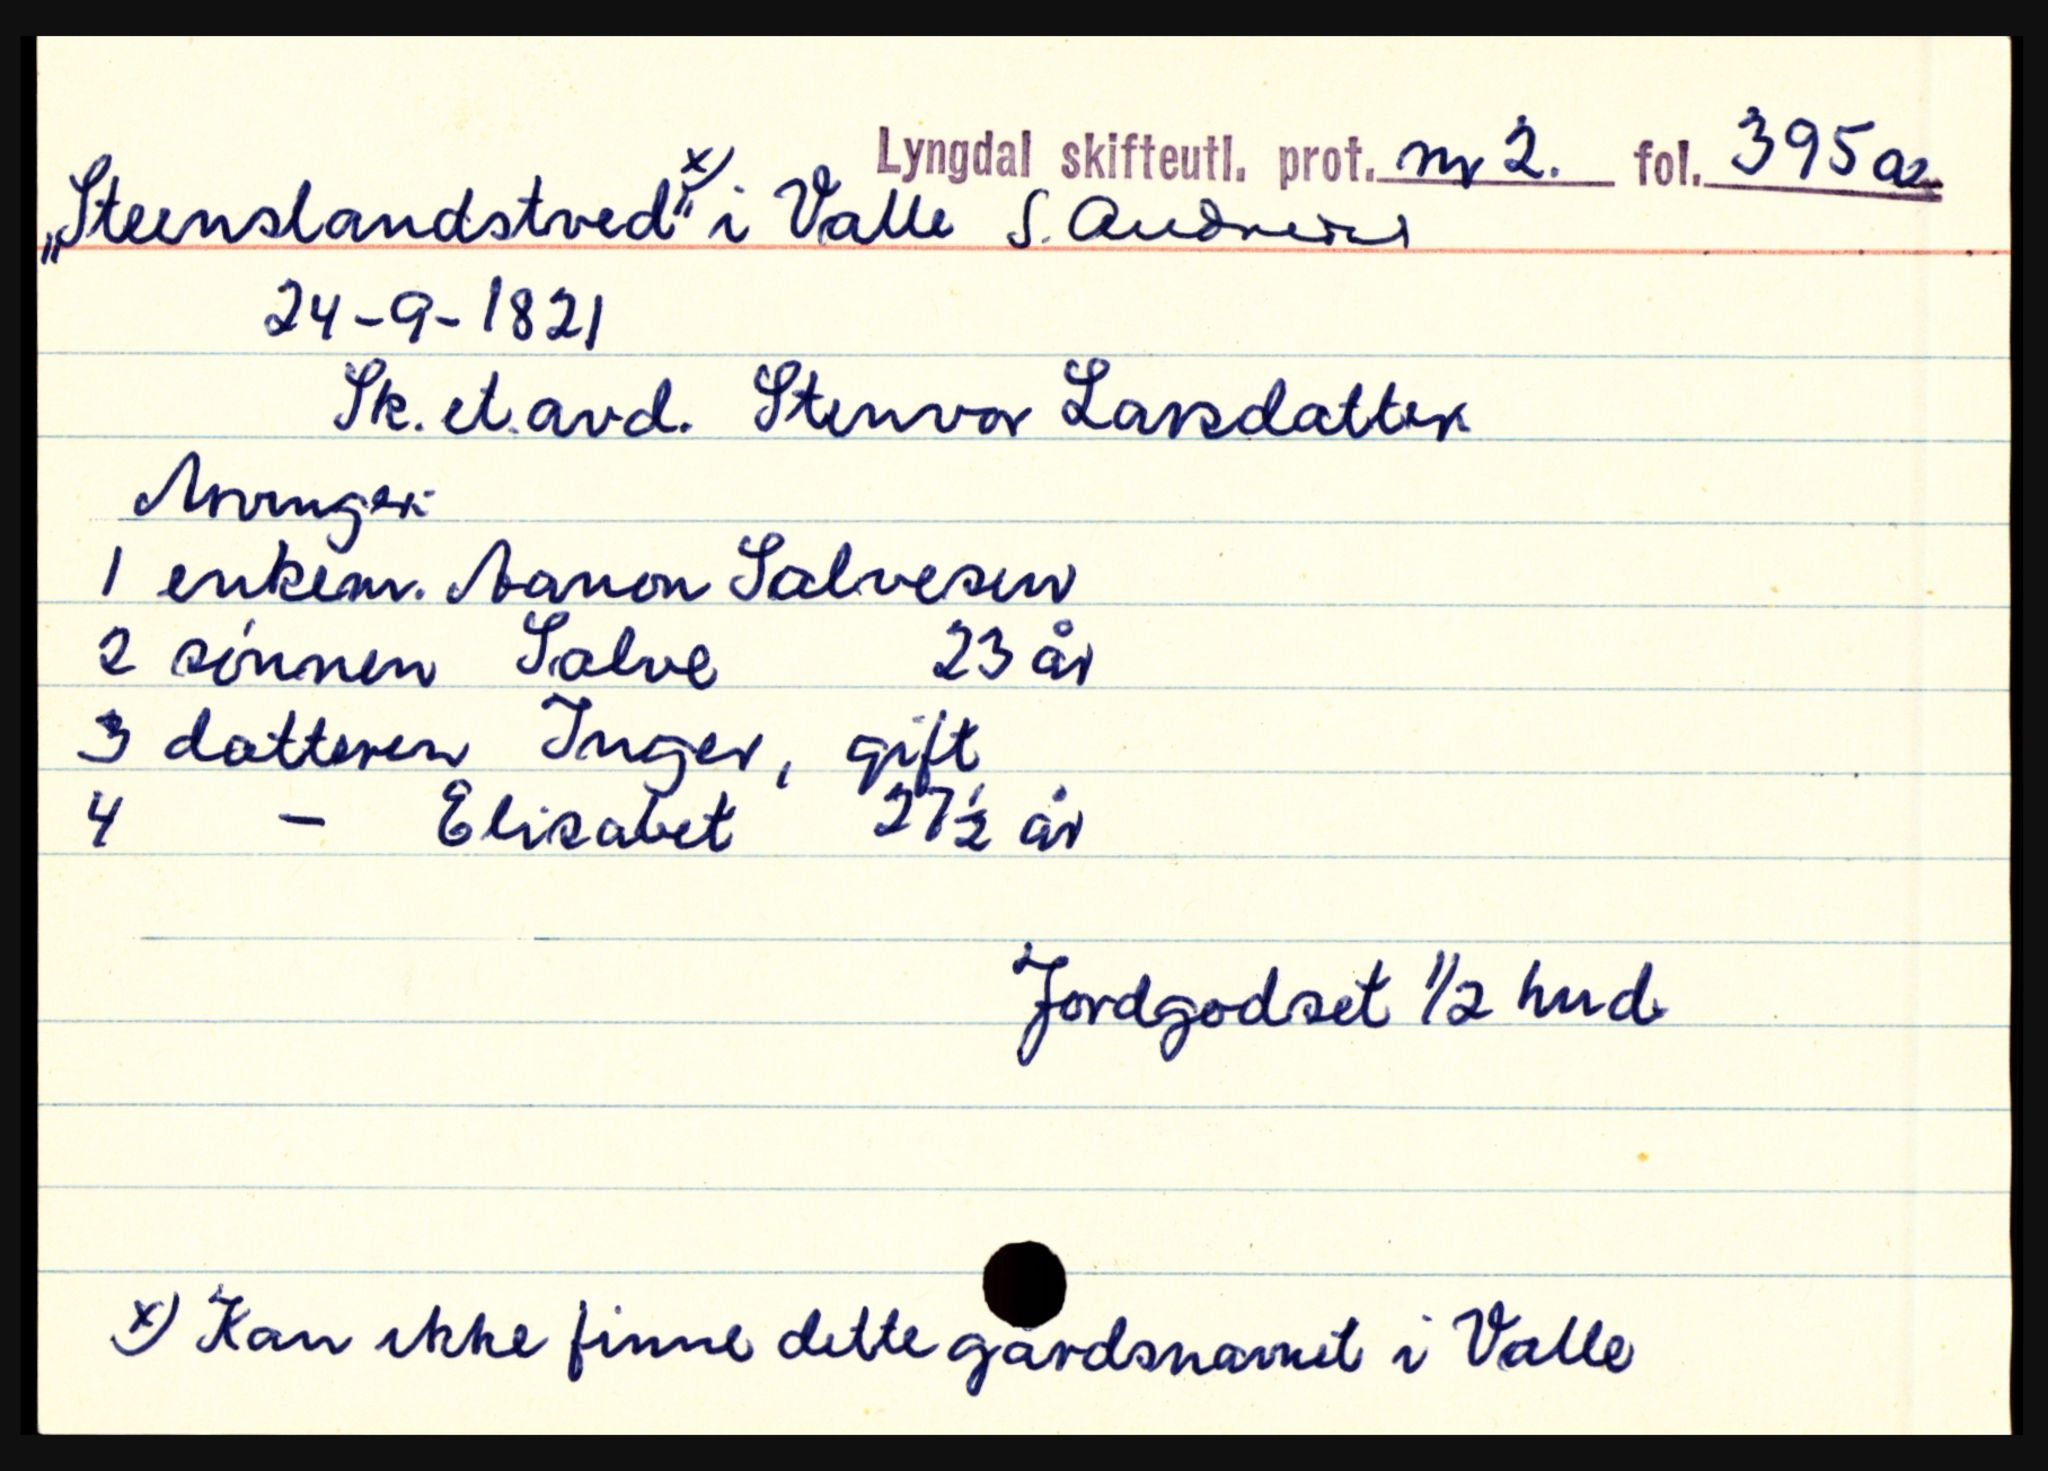 Lyngdal skifteutl. prot. nr 2. fol. 395a
„Steenslandstved“ x) i Valle S. Audnedal
24-9-1821
Sk. et. avd. Stenvor Larsdatter
Arvinger:
1 enkem. Aanon Salvesen
2 sønnen Salve 23 år
3 datteren Inger, gift
4 - Elisabet 27½ år
Jordgodset 1/2 hud
x) Kan ikke finne dette gårdsnavnet i Valle